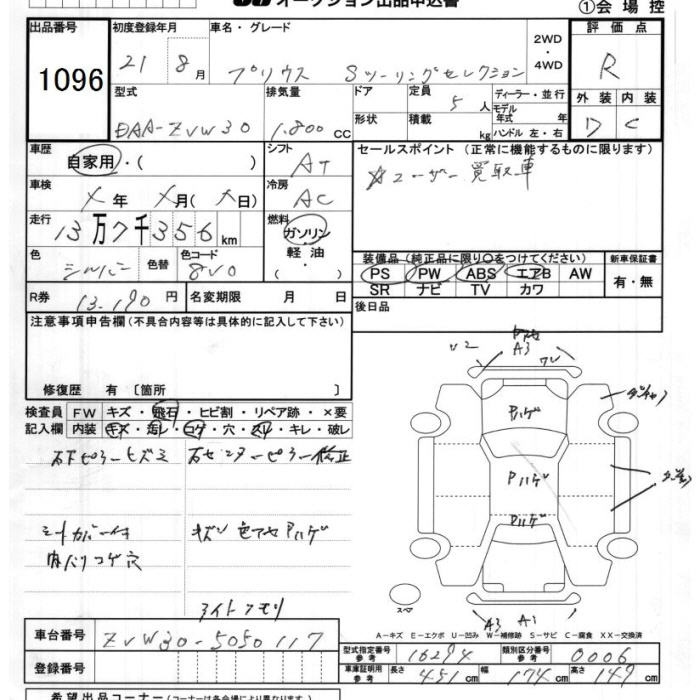 オークション出品申込書
①会場控
出品番号 1096
初度登録年月 21 8月
車名・グレード プリウス Sツーリングセレクション
2WD・4WD
評価点 R
外装 内装
D C
型式 DAA-ZVW30
排気量 1.800 CC
ドア 形状
定員 5人
積載 kg
ディーラー・並行
モデル年式 年
ハンドル 左・右
車歴 自家用・( )
シフト AT
セールスポイント (正常に機能するものに限ります)
☆ユーザー買取車
車検 メ年 メ月(メ日)
冷房 AC
走行 13万7千356km
燃料 ガソリン・軽油・( )
色 シルバー 色替 色コード 8V0
装備品(純正品に限り○をつけてください) 新車保証書
PS PW ABS エアB AW 有・無
SR ナビ TV カワ
R券 13.190円
名変期限 月 日
後日品
注意事項申告欄(不具合内容等は具体的に記入して下さい)
修復歴 有〔箇所 〕
検査員 FW キズ・飛石・ヒビ割・リペア跡・×要
記入欄 内装 キズ・汚レ・コゲ・穴・スリ・キレ・破レ
右センターピラー修正
シートカバー付 キズ 色アセ Pハゲ
内ハリコゲ穴
ライトクモリ
U2 A3
Pハゲ
Pハゲ
Pハゲ
スペア
A3 A1
A-キズ E-エクボ U-凹み W-補修跡 S-サビ C-腐食 XX-交換済
車台番号 ZVW30-5050117
登録番号
型式指定番号 参考 16294
類別区分番号 参考 0006
車庫証明用 参考 長さ 451cm 幅 174cm 高さ 149cm
希望出品コーナー(コーナーは各会場により異なります)